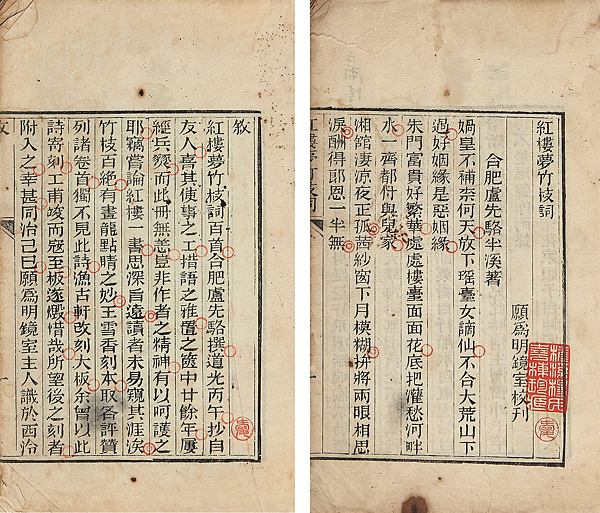 紅樓夢竹枝詞
願爲明鏡室校刊
合肥盧先駱半溪著
媧皇不補奈何天放下瑤臺女謫仙不合大荒山下
過好姻緣是惡姻緣
朱門富貴好繁華處處樓臺面面花底把灌愁河畔
水一齊都付與兒家
湘館淒涼夜正孤茜紗窗下月模糊拚將兩眼相思
淚酬得郎恩一半無
紅樓夢竹枝詞
敘
紅樓夢竹枝詞百首合肥盧先駱撰道光丙午抄自
友人喜其使事之工措語之雅置之篋中廿餘年屢
經兵燹而此冊無恙豈非作者之精神有以呵護之
耶竊嘗論紅樓一書思深旨遠讀者未易窺其涯涘
竹枝百絕有畫龍點睛之妙王雪香刻本取各評贊
列諸卷首獨不見此詩漁古軒改刻大板余曾以此
詩寄刻工甫竣而寇至板遂燬惜哉所望後之刻者
附入之幸甚同治己巳願爲明鏡室主人識於西泠
敘